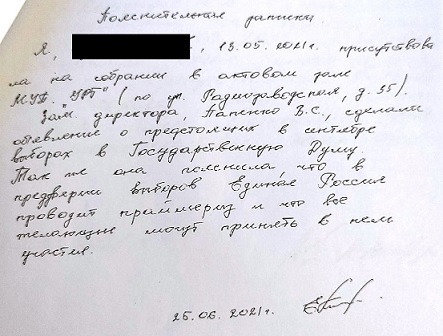 Пояснительная записка
Я, , 13.05.2021г. присутствова
ла на собрании в актовом зале
МУП "УРТ" (по ул. Радиозаводской, д. 35).
Зам. директора, Папенко В.С., сделали
объявление о предстоящих в сентябре
выборах в Государственную Думу.
Так же она пояснила, что в
преддверии выборов Единая Россия
проводит праймериз и что все
желающие могут принять в нем
участия.
25.06.2021г.